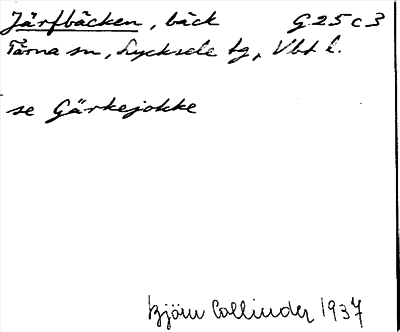 Järfbäcken, bäck G 25 c 3
Tärna sn, Lycksele lg, Vbt l.
se Gärkejokke
Björn Collinder 1937